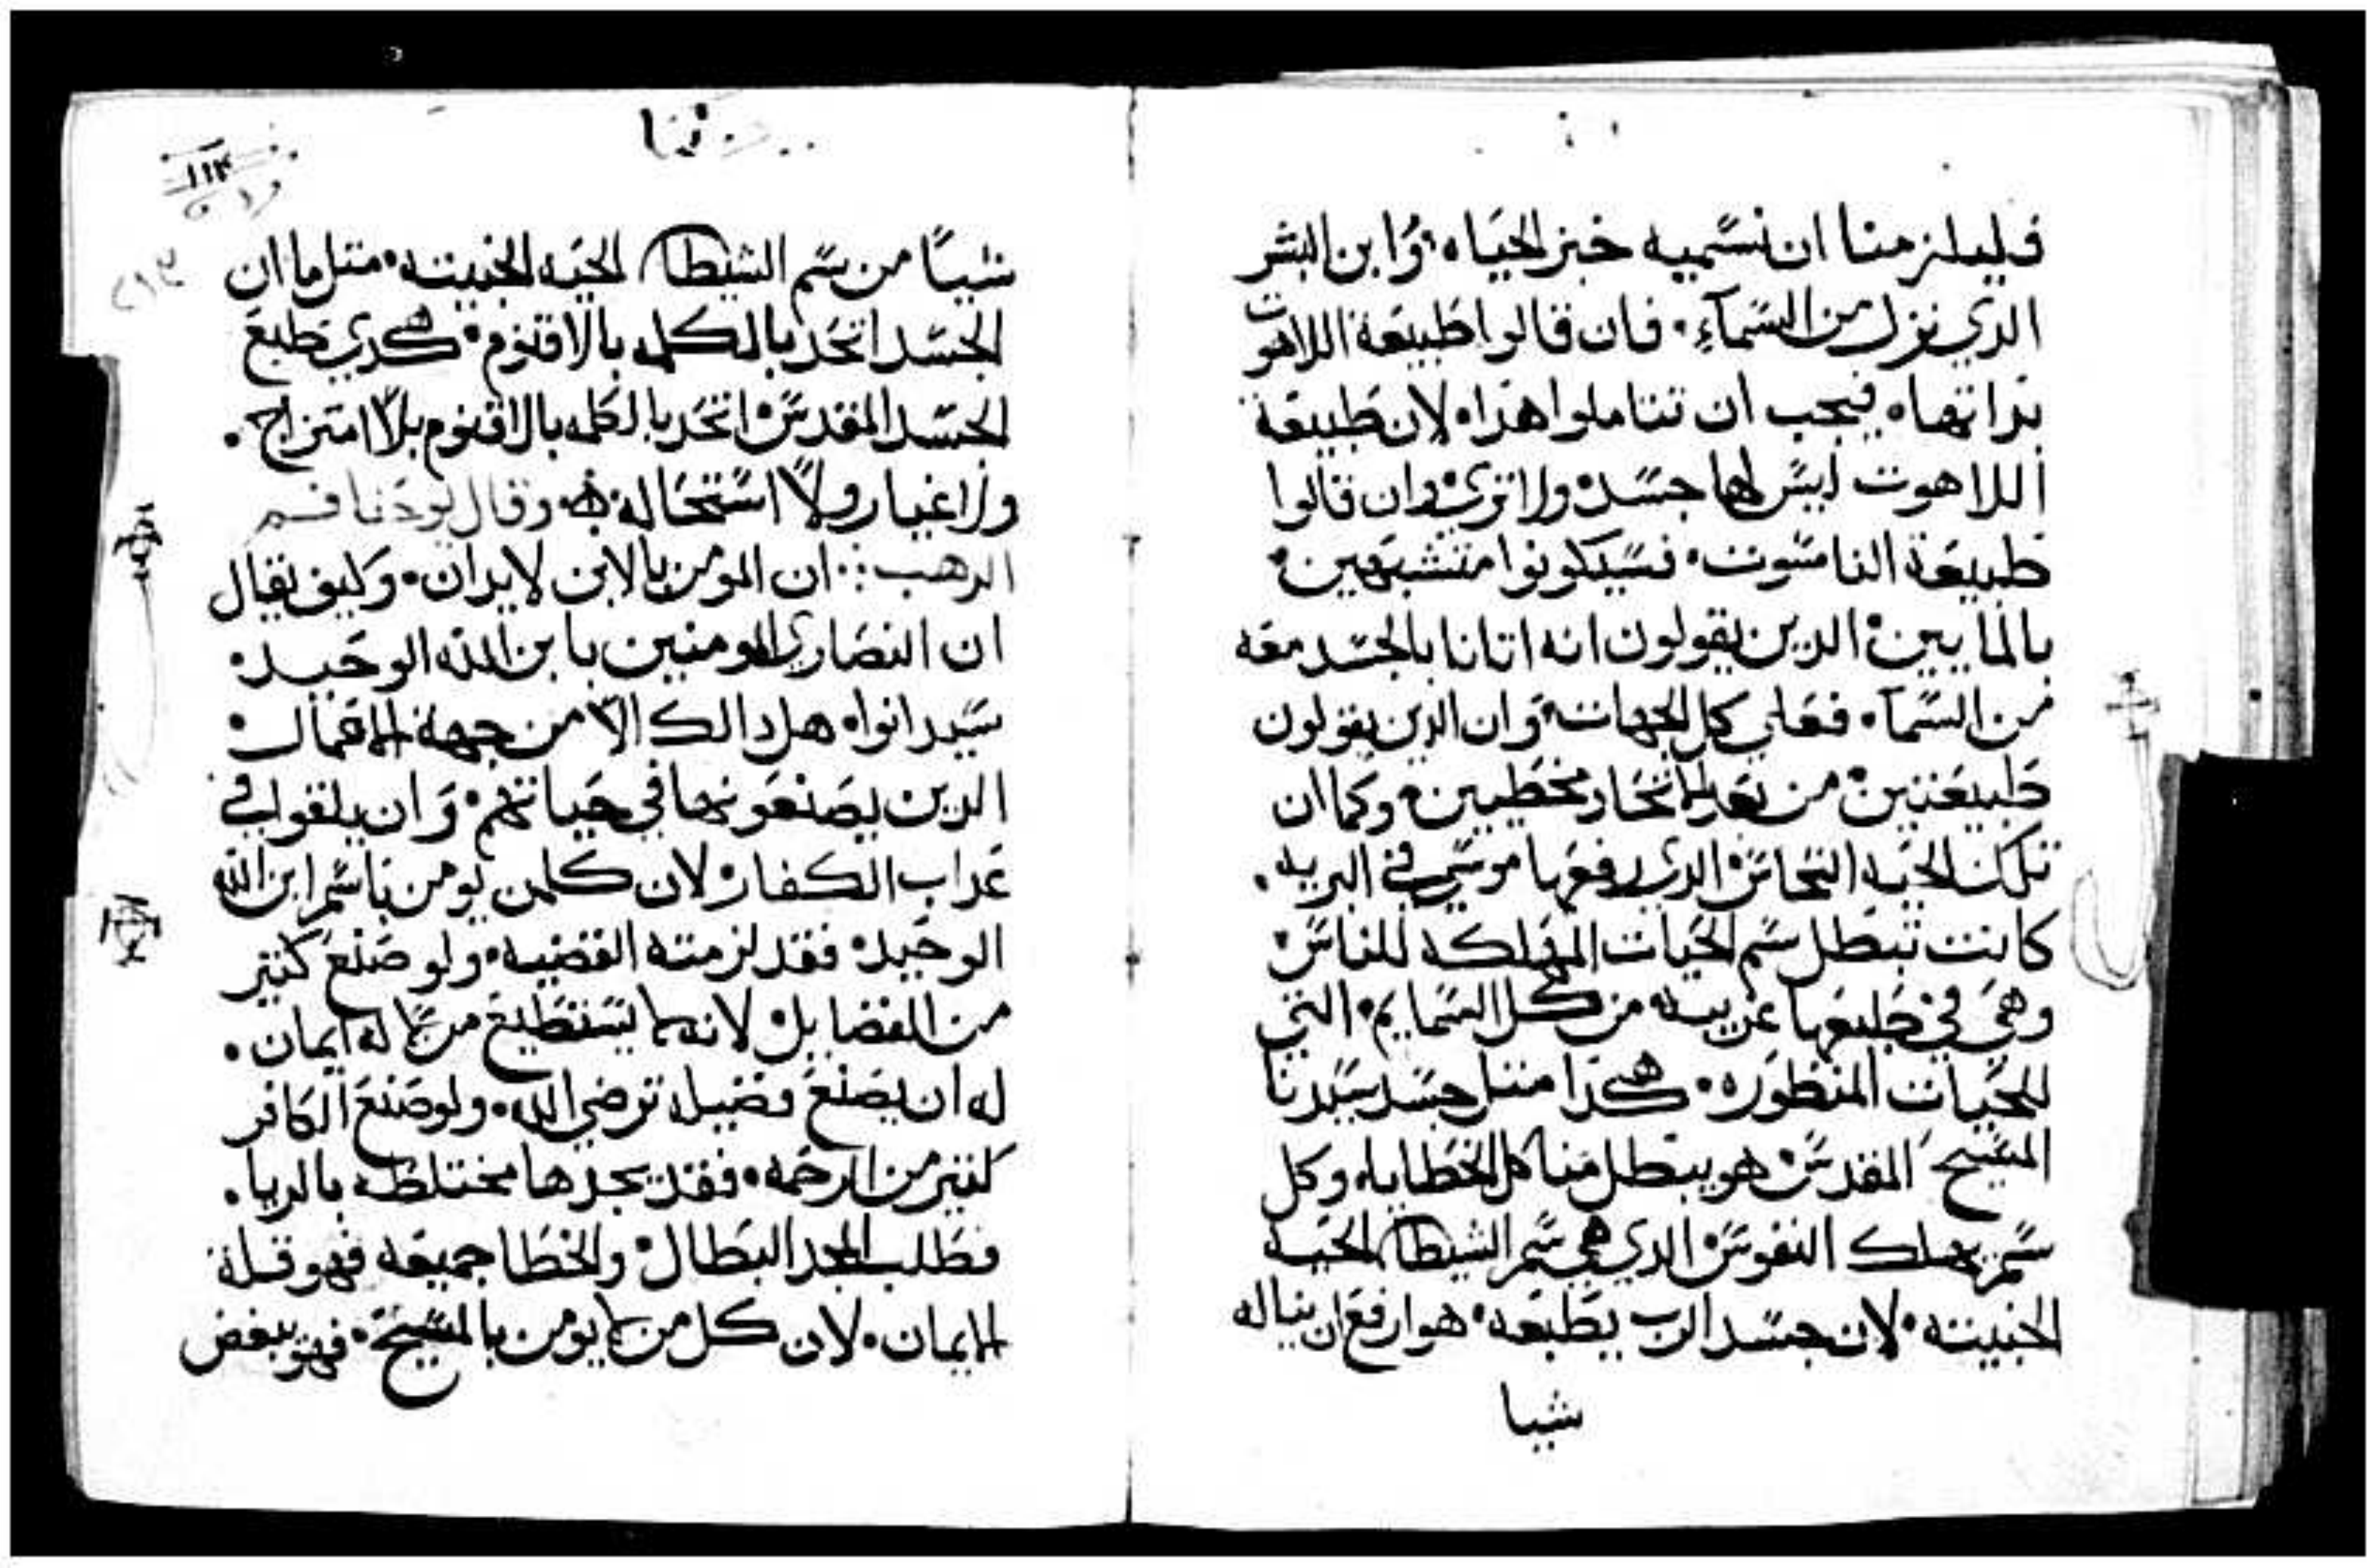 فليلزمنا ان نسميه خبز الحياه وابن البشر
الدي نزل من السماء فان قالوا طبيعة اللاهوت
بداتها فيجب ان تتاملوا هدا لان طبيعة
اللاهوت ليس لها جسد ولا تري وان قالوا
طبيعة الناسوت فسيكونوا متشبهين
بالمايين الدين يقولون انه اتانا بالجسد معه
من السماء فعلي كل الجهات وان الدين يقولون
طبيعتين من بعد الاتحاد مخطيين وكما ان
تلك الحيه النحاس الدي رفعها موسي في البريه
كانت تبطل سم الحيات المهلكه للناس
وهي في طبعها غريبه من كل السمايم التي
للحيات المنظوره هكدا متل جسد سيدنا
المسيح المقدس هو يبطل منا كل الخطايا وكل
سم يهلك النفوس الدي هي سم الشيطان الحيه
الخبيته لان جسد الرب بطبعه هو ارفع ان يناله
شيا
شيا من سم الشيطان الحيه الخبيته متل ما ان
الجسد اتحد بالكلمه بالاقنوم هكدي طبع
الجسد المقدس اتحد بالكلمه بالاقنوم بلا امتزاج
ولا اغيار ولا استحالة وقال يوحنا فم
الدهب ان المومن بالابن لا يدان وكيف يقال
ان النصاري المومنين بابن الله الوحيد
سيدانوا هل دالك الا من جهة الاعمال
الدين يصنعونها في حياتهم وان يلقوا في
عداب الكفار لان كلمن يومن باسم ابن الله
الوحيد فقد لزمته القضيه ولو صنع كتير
من الفضايل لانه لا يستطيع من لا له ايمان
له ان يصنع فضيله ترضي الله ولو صنع الكافر
كتير من الرحمه فقد يجدها مختلطه بالريا
فطلب المجد البطال والخطا جميعه فهو قلة
الايمان لان كل من لا يومن بالمسيح فهو يبغض